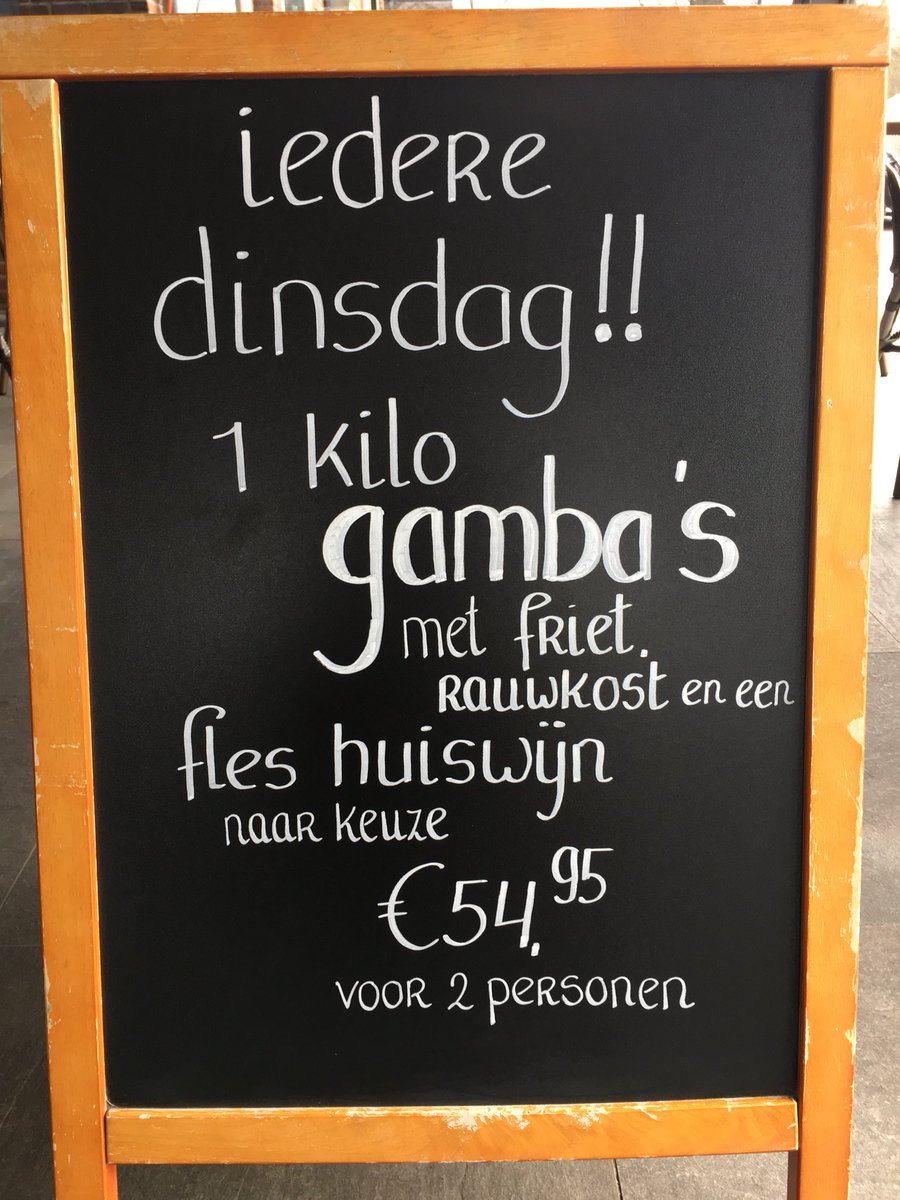 iedere
dinsdag!!
1 kilo
gamba's
met friet.
rauwkost en een
fles huiswijn
naar keuze
€54,95
voor 2 personen